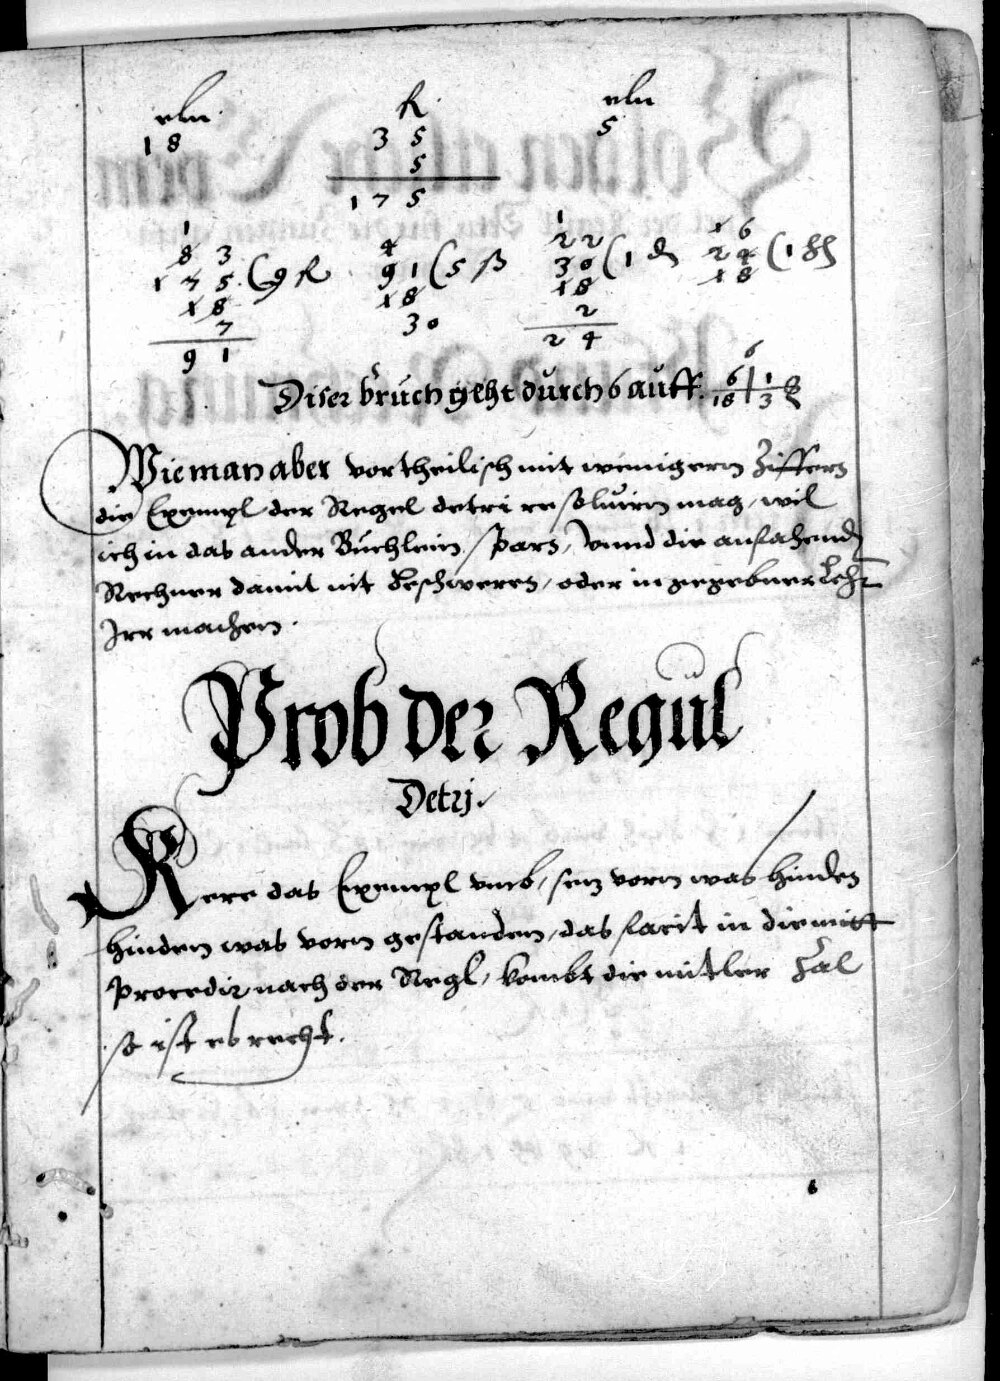 eln fl. eln
18 35 5
5
175
1 4 1 16
83 91 (5 ß 22 24 (1 hl
175 (9 fl 18 30 (1 d 18
18 30 18
7 2
91 24
Diser bruch geht durch 6 auff. 6/18 | 1/3 6
Wie man aber vortheilisch mit wenigern Ziffern
die Exempl der Regel detri resoluirn mag, wil
ich in das ander Büchlein sparn, vnnd die anfahenden
Rechner damit nit beschweren, oder in gegebner Lehr
Irr machen.
Prob der Regul
Detrj.
Kere das Exempl vmb, setz vorn was hinden
hinden was vorn gestanden, das facit in die mitt
Procedir nach der Regl, kombt die mitler Zal
so ist es recht.